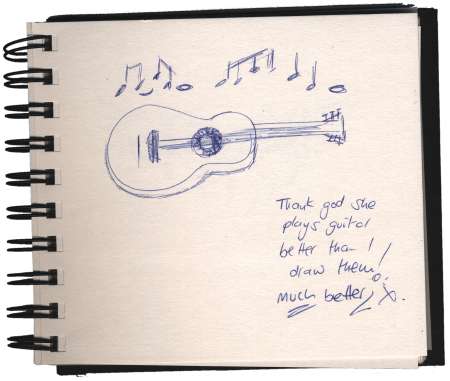 Thank god she
plays guitar
better than I
draw them!
Much better! x.